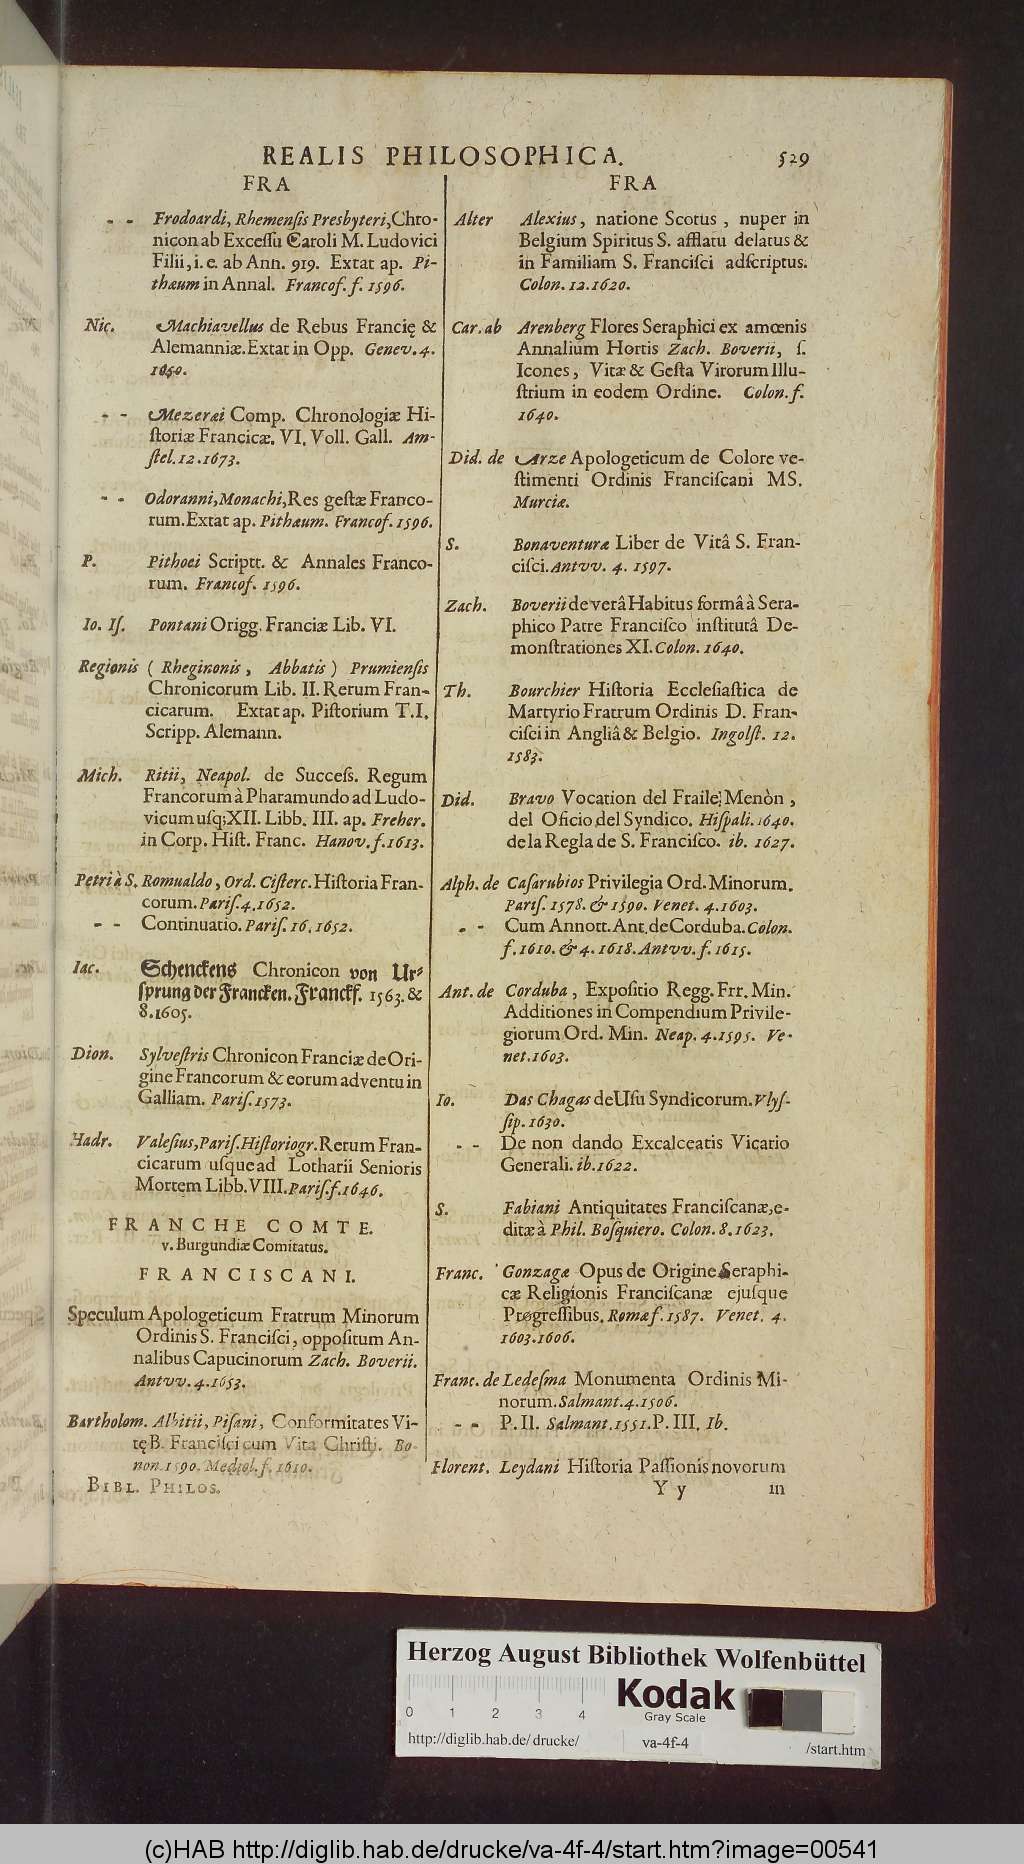 REALIS PHILOSOPHICA. 529
FRA
- - Frodoardi, Rhemenſis Presbyteri, Chro-
nicon ab Exceſſu Caroli M. Ludovici
Filii, i. e. ab Ann. 919. Extat ap. Pi-
thæum in Annal. Francof. f. 1596.
Nic. Machiavellus de Rebus Francię &
Alemanniæ. Extat in Opp. Genev. 4.
1650.
- - Mezeræi Comp. Chronologiæ Hi-
ſtoriæ Francicæ. VI. Voll. Gall. Am-
ſtel. 12. 1673.
- - Odoranni, Monachi, Res geſtæ Franco-
rum. Extat ap. Pithæum. Francof. 1596.
P. Pithoei Scriptt. & Annales Franco-
rum. Francof. 1596.
Io. Iſ. Pontani Origg. Franciæ Lib. VI.
Regionis (Rheginonis, Abbatis) Prumienſis
Chronicorum Lib. II. Rerum Fran-
cicarum. Extat ap. Piſtorium T. I.
Scripp. Alemann.
Mich. Ritii, Neapol. de Succeſs. Regum
Francorum à Pharamundo ad Ludo-
vicum uſq; XII. Libb. III. ap. Freher.
in Corp. Hiſt. Franc. Hanov. f. 1613.
Petri à S. Romualdo, Ord. Ciſterc. Hiſtoria Fran-
corum. Pariſ. 4. 1652.
- - Continuatio. Pariſ. 16. 1652.
Iac. Schenckens Chronicon von Ur-
ſprung der Francken. Franckf. 1563. &
8. 1605.
Dion. Sylveſtris Chronicon Franciæ de Ori-
gine Francorum & eorum adventu in
Galliam. Pariſ. 1573.
Hadr. Valeſius, Pariſ. Hiſtoriogr. Rerum Fran-
cicarum uſque ad Lotharii Senioris
Mortem Libb. VIII. Pariſ. f. 1646.
FRANCHE COMTE.
v. Burgundiæ Comitatus.
FRANCISCANI.
Speculum Apologeticum Fratrum Minorum
Ordinis S. Franciſci, oppoſitum An-
nalibus Capucinorum Zach. Boverii.
Antvv. 4. 1653.
Bartholom. Albitii, Piſani, Conformitates Vi-
tę B. Franciſci cum Vita Chriſti. Bo-
non. 1590. Mediol. f. 1610.
BIBL. PHILOS.
FRA
Alter Alexius, natione Scotus, nuper in
Belgium Spiritus S. afflatu delatus &
in Familiam S. Franciſci adſcriptus.
Colon. 12. 1620.
Car. ab Arenberg Flores Seraphici ex amœnis
Annalium Hortis Zach. Boverii, ſ.
Icones, Vitæ & Geſta Virorum Illu-
ſtrium in eodem Ordine. Colon. f.
1640.
Did. de Arze Apologeticum de Colore ve-
ſtimenti Ordinis Franciſcani MS.
Murciæ.
S. Bonaventuræ Liber de Vitâ S. Fran-
ciſci. Antvv. 4. 1597.
Zach. Boverii de verâ Habitus formâ à Sera-
phico Patre Franciſco inſtitutâ De-
monſtrationes XI. Colon. 1640.
Th. Bourchier Hiſtoria Eccleſiaſtica de
Martyrio Fratrum Ordinis D. Fran-
ciſci in Angliâ & Belgio. Ingolſt. 12.
1583.
Did. Bravo Vocation del Fraile Menòn,
del Oficio del Syndico. Hiſpali. 1640.
de la Regla de S. Franciſco. ib. 1627.
Alph. de Caſarubios Privilegia Ord. Minorum.
Pariſ. 1578. & 1590. Venet. 4. 1603.
- - Cum Annott. Ant. de Corduba. Colon.
f. 1610. & 4. 1618. Antvv. f. 1615.
Ant. de Corduba, Expoſitio Regg. Frr. Min.
Additiones in Compendium Privile-
giorum Ord. Min. Neap. 4. 1595. Ve-
net. 1603.
Io. Das Chagas de Uſu Syndicorum. Vlyſ-
ſip. 1630.
- - De non dando Excalceatis Vicario
Generali. ib. 1622.
S. Fabiani Antiquitates Franciſcanæ, e-
ditæ à Phil. Boſquiero. Colon. 8. 1623.
Franc. Gonzagæ Opus de Origine Seraphi-
cæ Religionis Franciſcanæ ejuſque
Progreſſibus. Romæ f. 1587. Venet. 4.
1603. 1606.
Franc. de Ledeſma Monumenta Ordinis Mi-
norum. Salmant. 4. 1506.
- - P. II. Salmant. 1551. P. III. Ib.
Florent. Leydani Hiſtoria Paſſionis novorum
Y y in
Herzog August Bibliothek Wolfenbüttel
0 1 2 3 4
Kodak
Gray Scale
http://diglib.hab.de/drucke/ va-4f-4 /start.htm
(c)HAB http://diglib.hab.de/drucke/va-4f-4/start.htm?image=00541